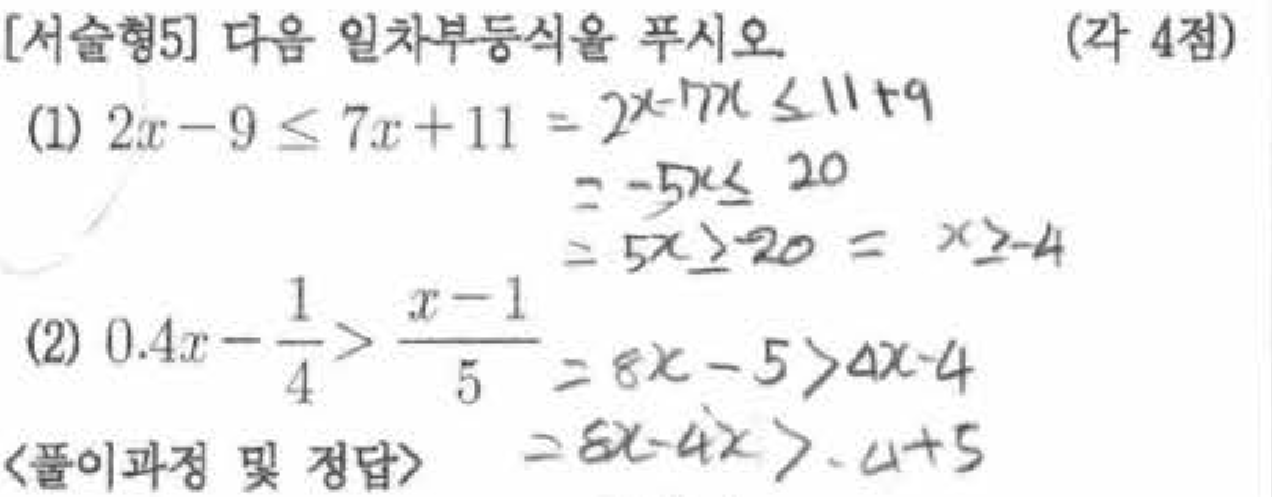 [서술형5] 다음 일차부등식을 푸시오. (각 4점)
(1) 2x-9 ≤ 7x+11 = 2x-7x ≤ 11+9
= -5x ≤ 20
= 5x ≥ -20 = x ≥ -4
(2) 0.4x - 1/4 > (x-1)/5 = 8x-5 > 4x-4
= 8x-4x > -4+5
<풀이과정 및 정답>